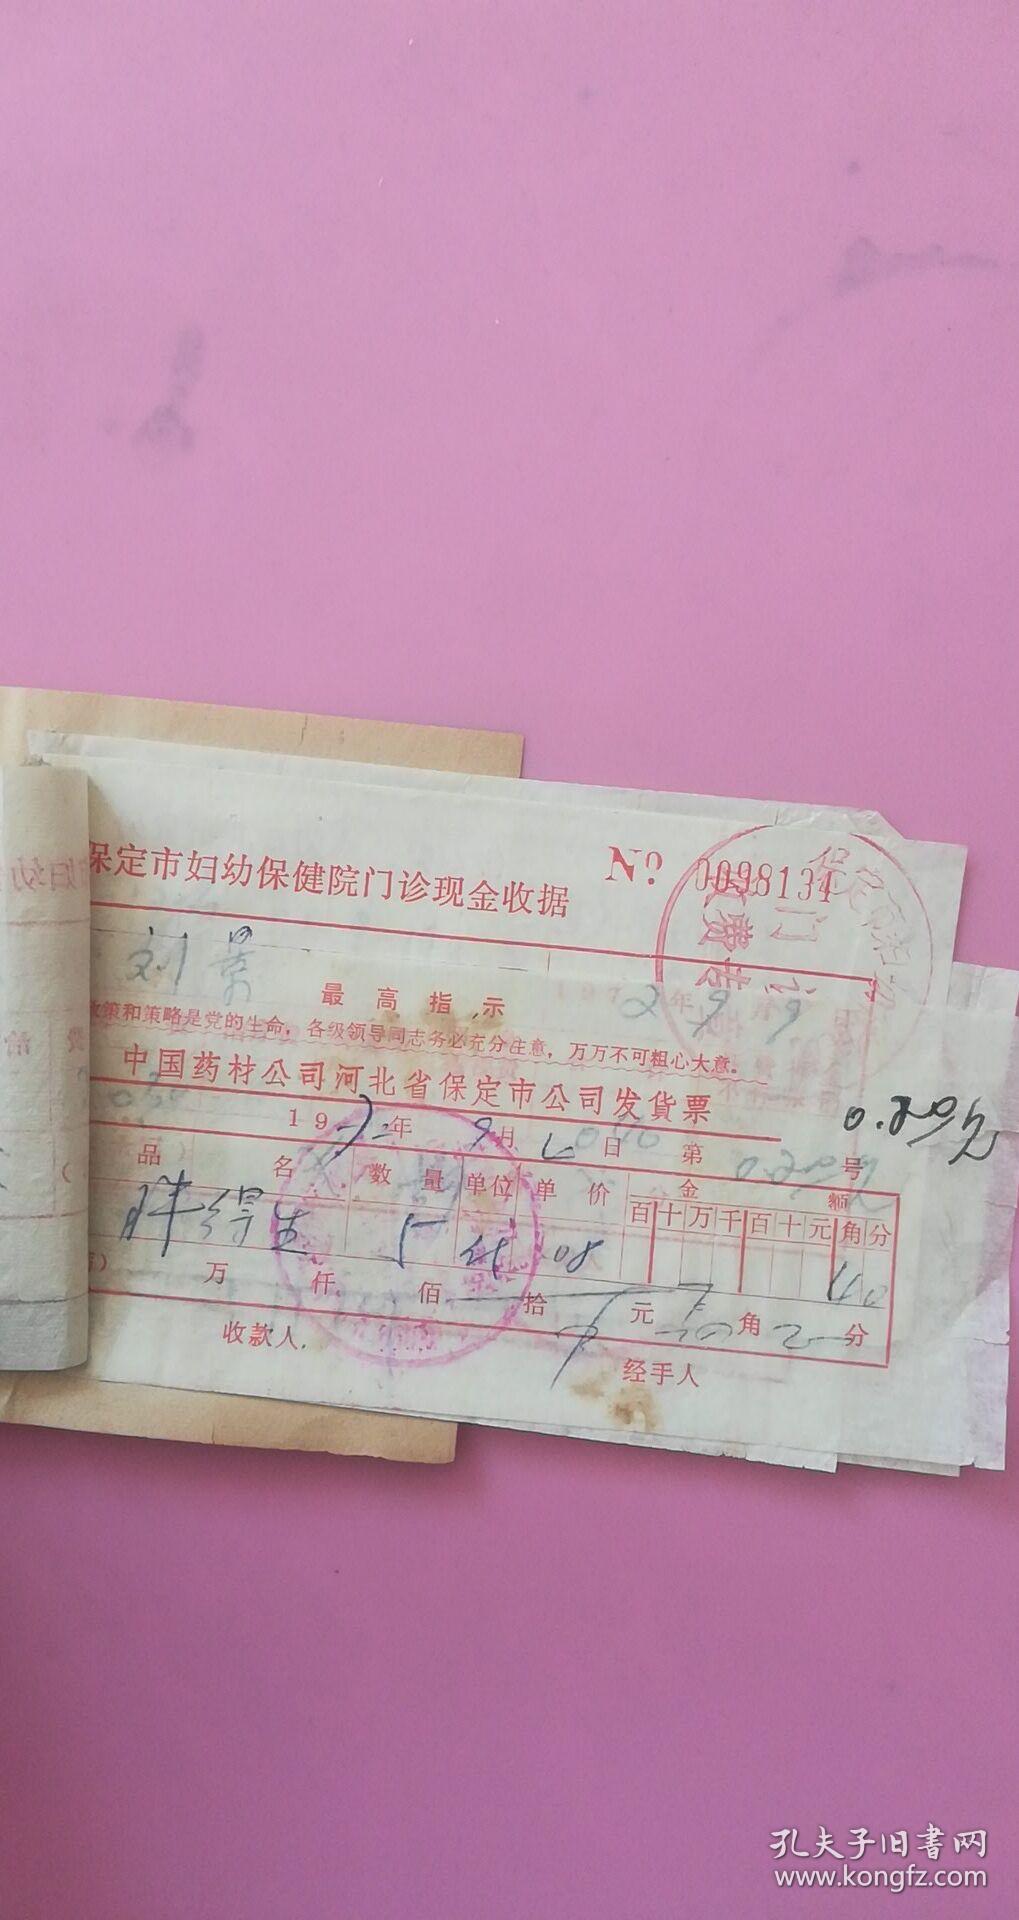 保定市妇幼保健院门诊现金收据 No 0098134
刘景
1972年9月9日
最高指示
政策和策略是党的生命，各级领导同志务必充分注意，万万不可粗心大意。
中国药材公司河北省保定市公司发货票
0.20元
1972年9月 日 第 号
品名 数量 单位 单价 金额
百十万千百十元角分
08 40
万 仟 佰 拾 元 角 分
收款人
经手人
孔夫子旧书网
www.kongfz.com